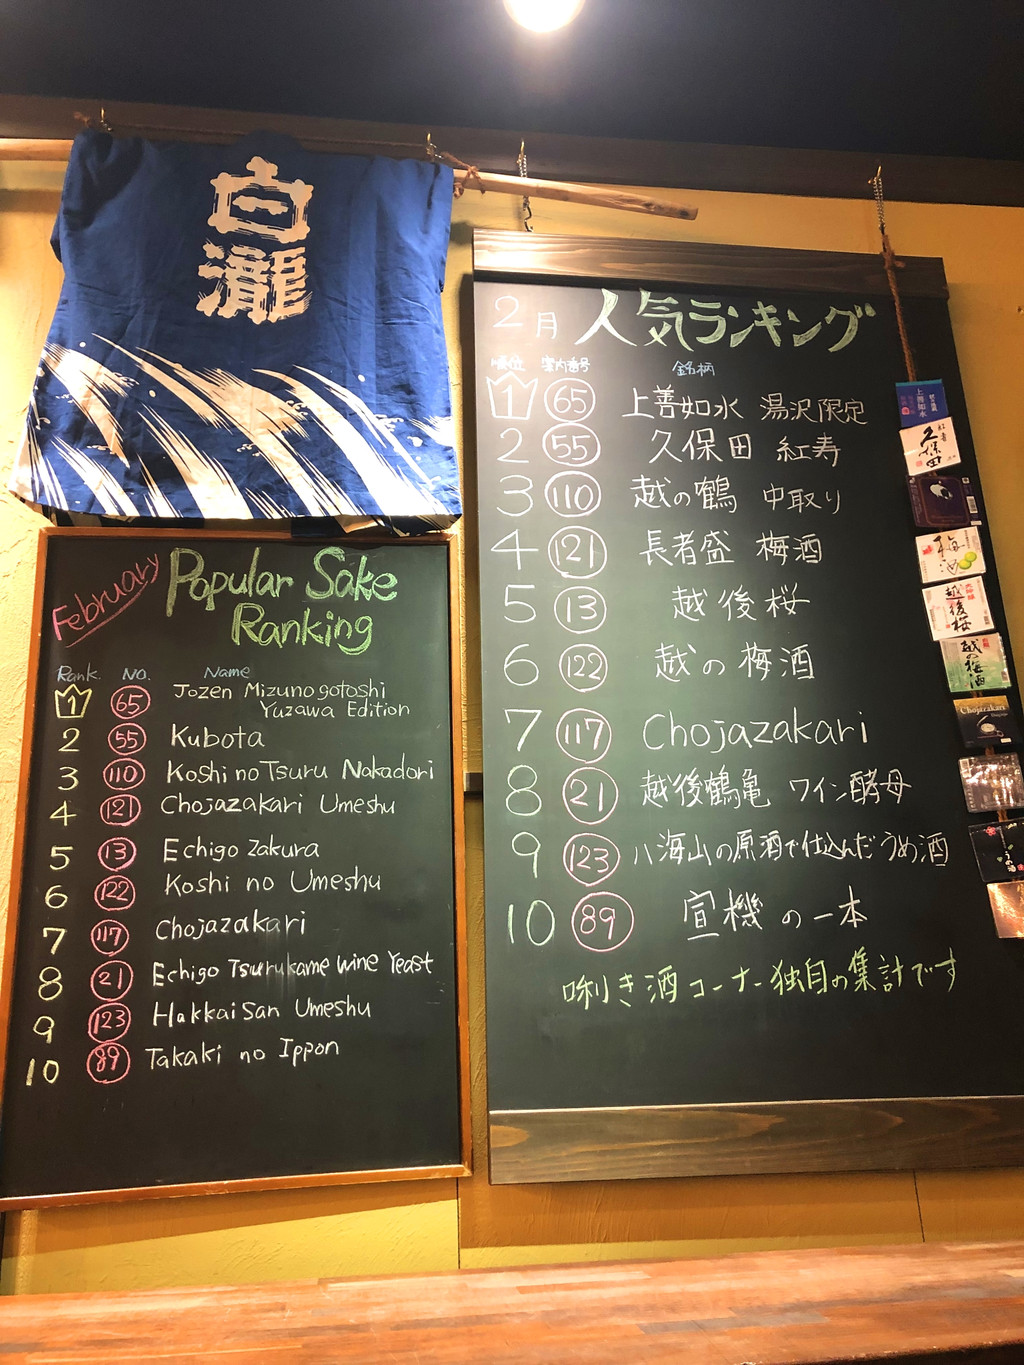 白瀧
February
Popular Sake
Ranking
Rank. No. Name
1 65 Jozen Mizunogotoshi
Yuzawa Edition
2 55 Kubota
3 110 Koshi no Tsuru Nakadori
4 121 Chojazakari Umeshu
5 13 Echigo Zakura
6 122 Koshi no Umeshu
7 117 Chojazakari
8 21 Echigo Tsurukame Wine Yeast
9 123 Hakkaisan Umeshu
10 89 Takaki no Ippon
2月 人気ランキング
順位 案内番号 銘柄
1 65 上善如水 湯沢限定
2 55 久保田 紅寿
3 110 越の鶴 中取り
4 121 長者盛 梅酒
5 13 越後桜
6 122 越の梅酒
7 117 Chojazakari
8 21 越後鶴亀 ワイン酵母
9 123 八海山の原酒で仕込んだうめ酒
10 89 宣機の一本
唎き酒コーナー独自の集計です
上善如水
紅寿
久保田
梅酒
越後桜
越の梅酒
Chojazakari